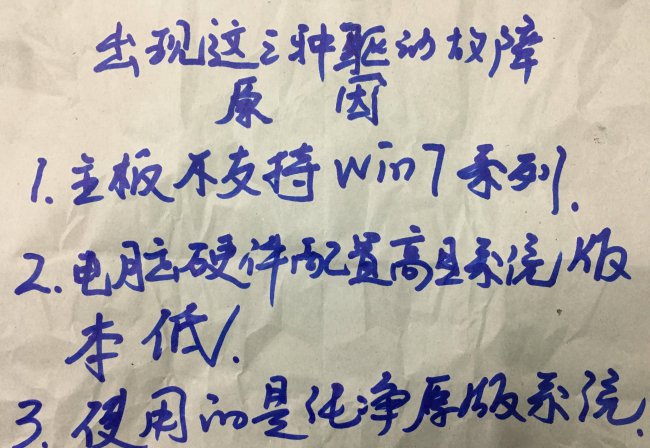 出现这三种驱动故障
原因
1.主板不支持Win7系列.
2.电脑硬件配置高且系统版
本低.
3.使用的是纯净原版系统.